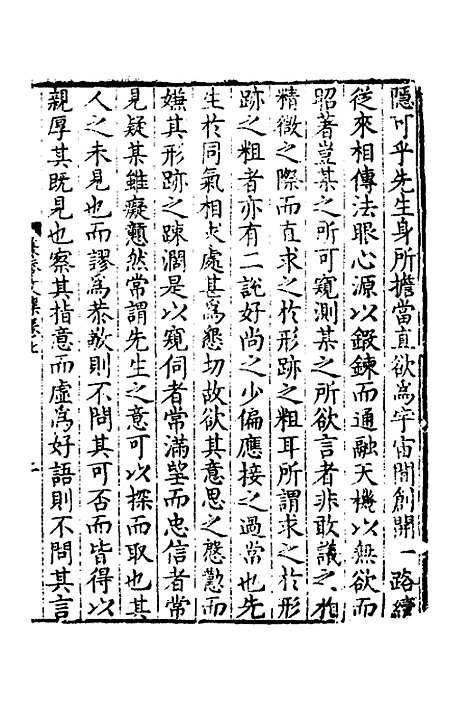 隱可乎先生身所擔當直欲為宇宙間創開一路續
從來相傳法眼心源以鍛鍊而通融天機以無欲而
昭著豈某之所可窺測某之所欲言者非敢議之於
精微之際而直求之於形跡之粗耳所謂求之於形
跡之粗者亦有二說好尚之少偏應接之過當也先
生於同氣相求處甚為懇切故欲其意思之慇懃而
嫌其形跡之踈濶是以窺伺者常滿望而忠信者常
見疑某雖癡戇然常謂先生之意可以探而取也其
人之未見也而謬為恭敬則不問其可否而皆得以
親厚其既見也察其指意而虛為好語則不問其言
文集卷七